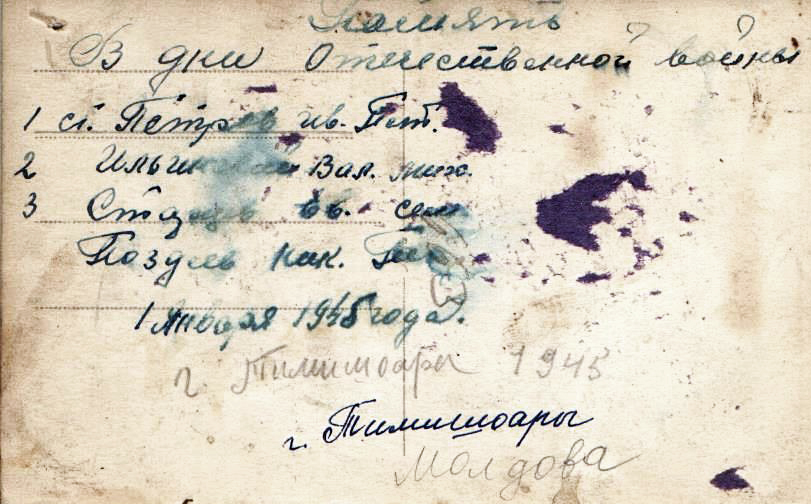 Память
В дни Отечественной войны
1 ст. Петров ив. Пет.
2 Вал. мих.
3 ев. сем
Позуль ник.
1 Января 1945 года.
г. Тимишоары 1945
г. Тимишоары
Молдова